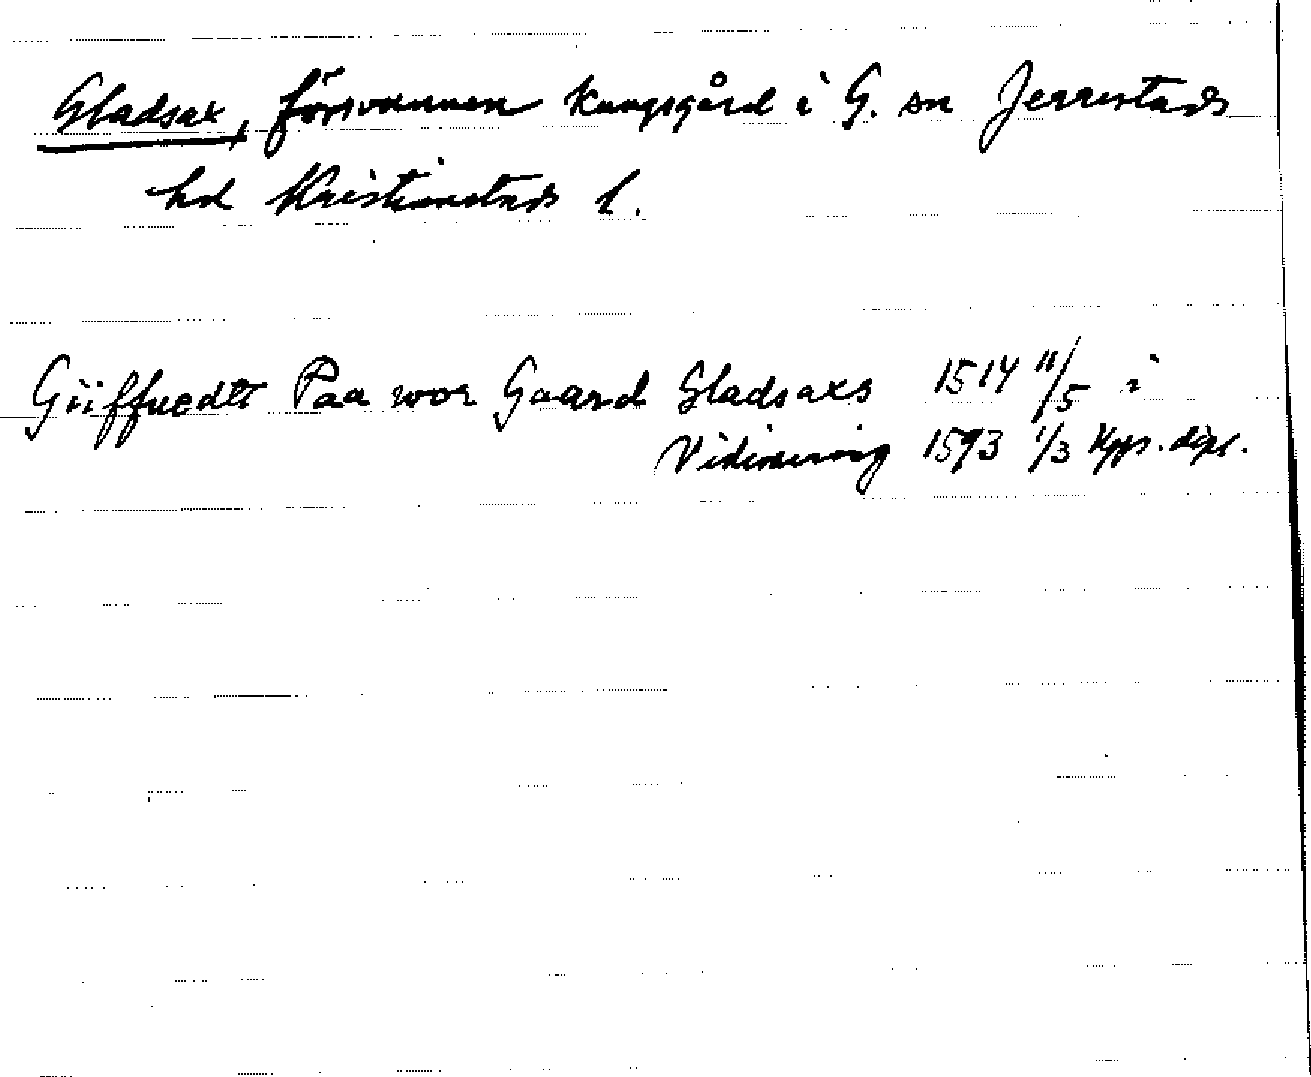 Gladsax, försvunnen kungsgård i G. sn Jerrestads
hd Kristianstads l.
Giiffuedtt Paa wor Gaard Gladsaxs 1514 11/5 i
Vidimering 1593 1/3 Hyps. dipl.